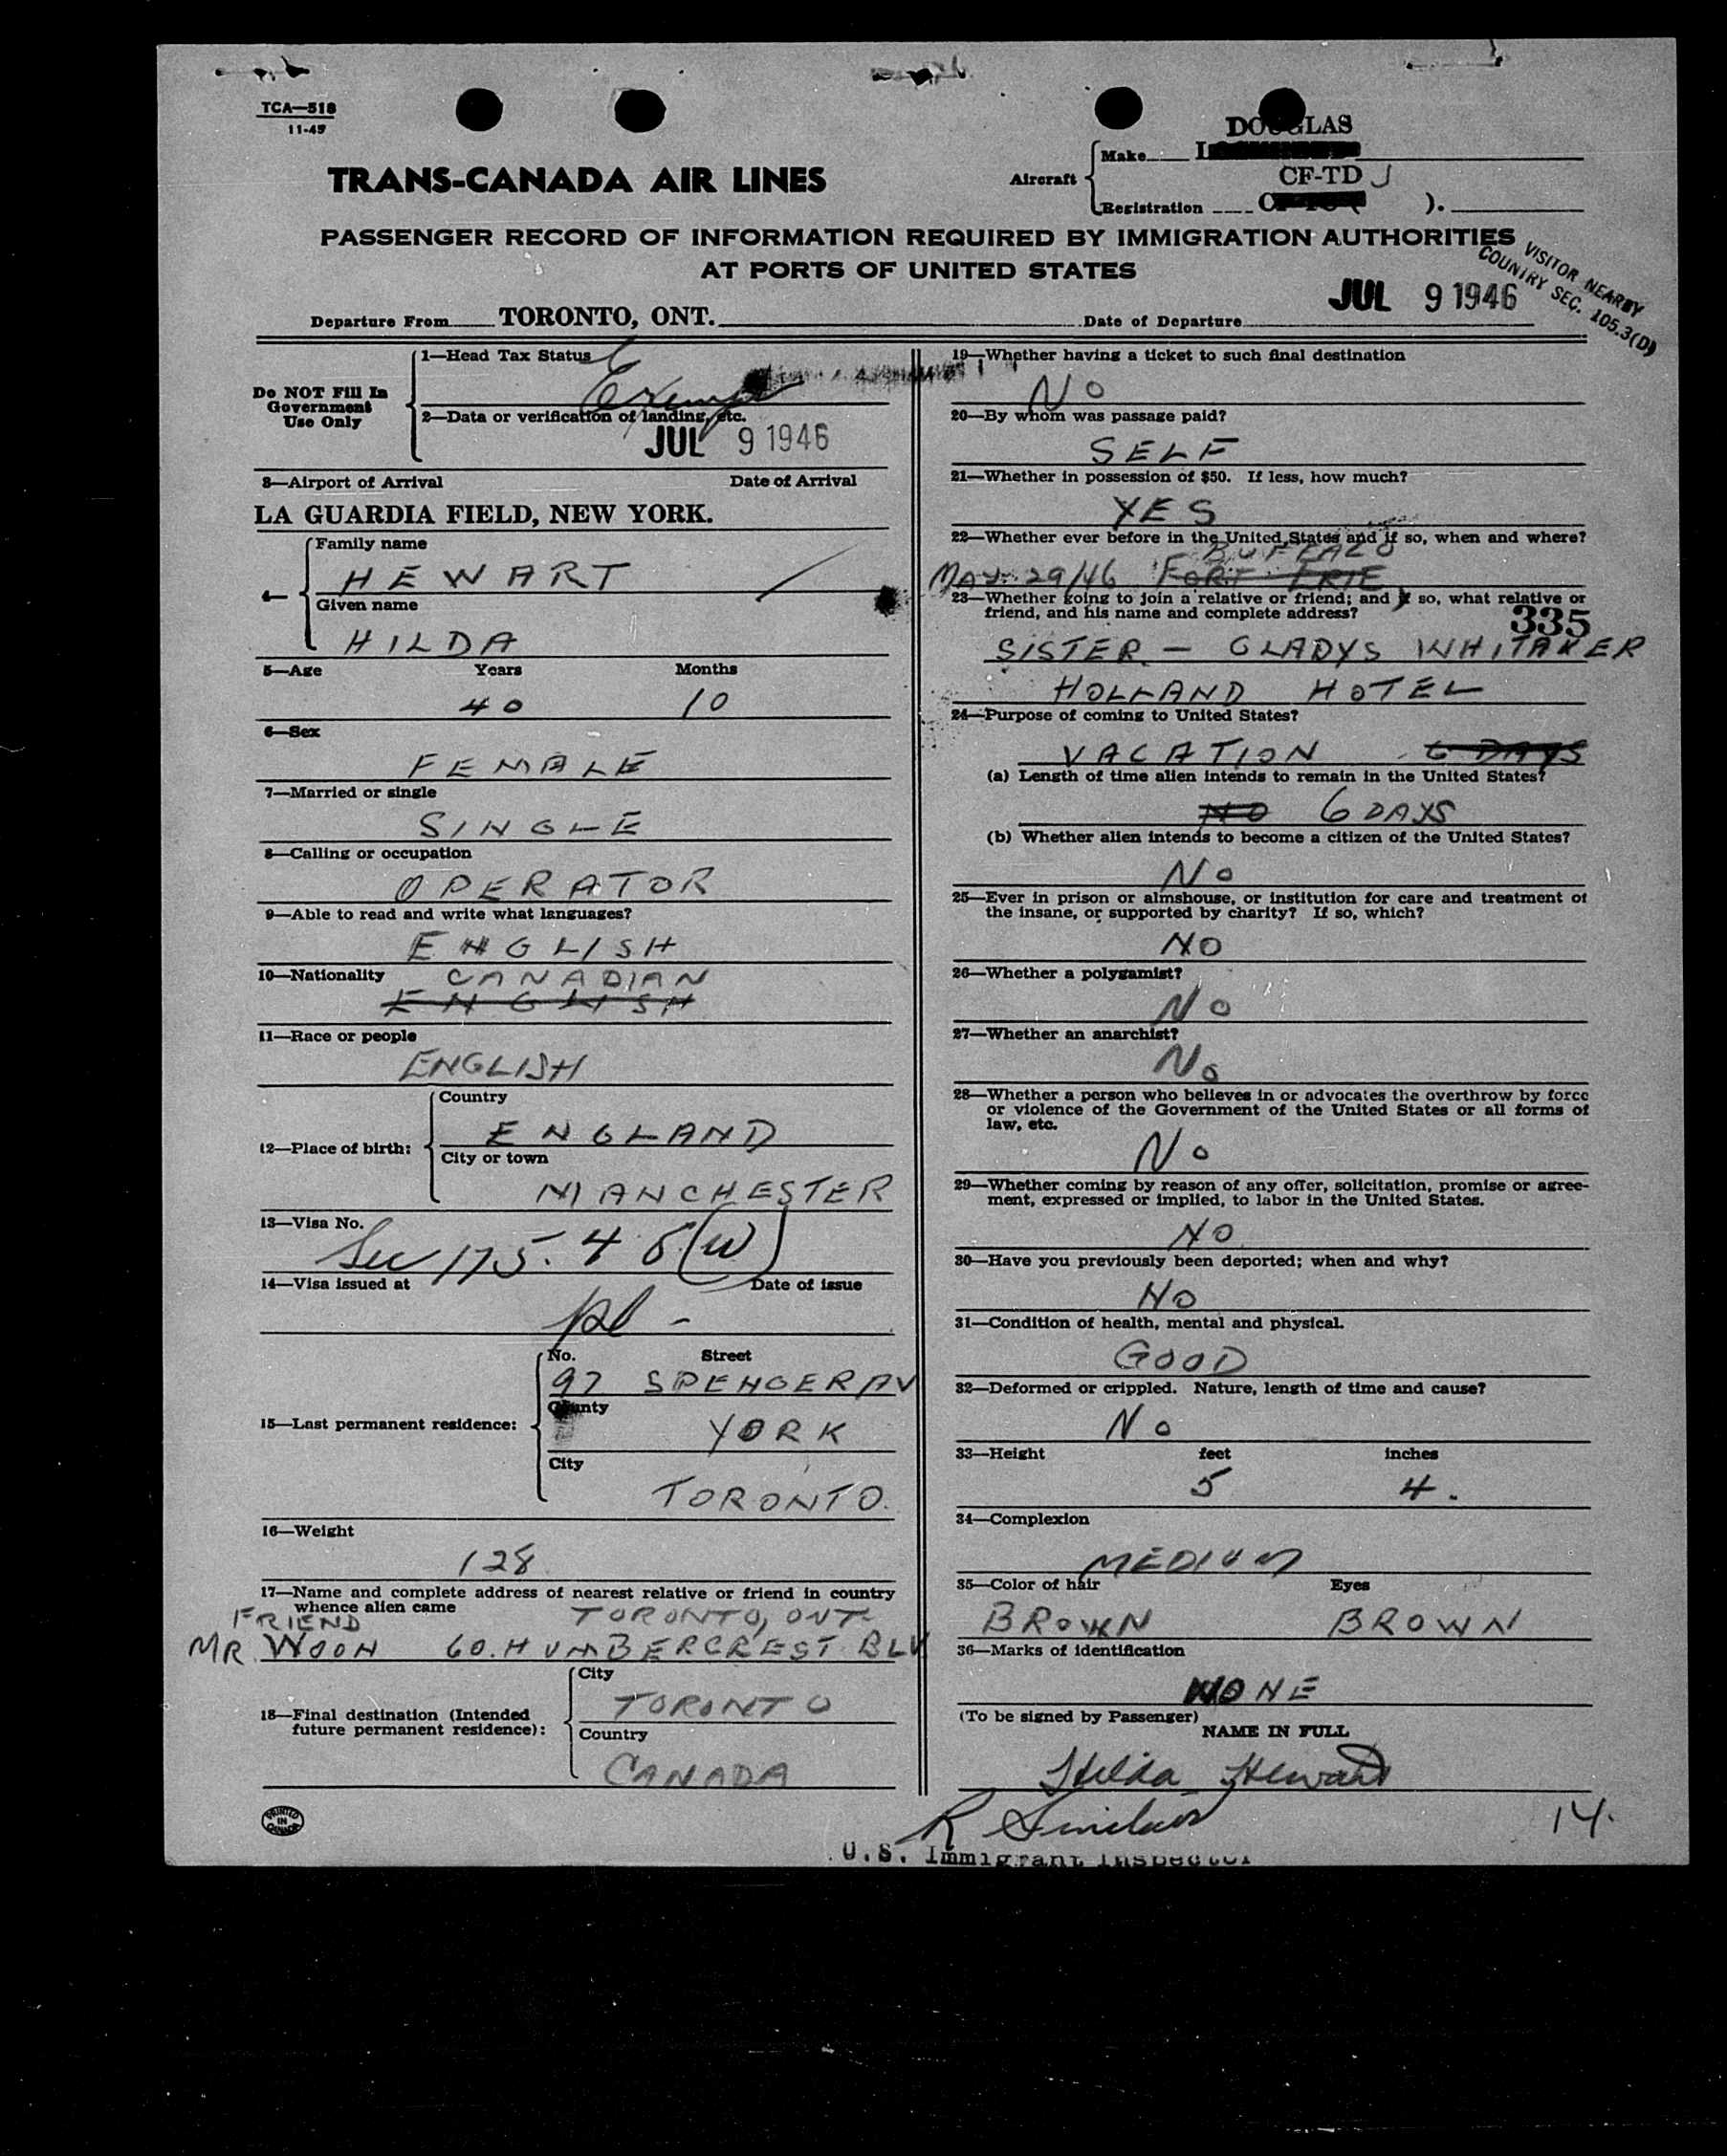 TCA—518
11-45
DOUGLAS
Make
Aircraft
CF-TD J
Registration ).
TRANS-CANADA AIR LINES
PASSENGER RECORD OF INFORMATION REQUIRED BY IMMIGRATION AUTHORITIES
AT PORTS OF UNITED STATES
VISITOR NEARBY
COUNTRY SEC. 105.3(D)
Departure From TORONTO, ONT. Date of Departure JUL 9 1946
Do NOT Fill In
Government
Use Only
1—Head Tax Status
Exempt
2—Data or verification of landing, etc.
JUL 9 1946
3—Airport of Arrival Date of Arrival
LA GUARDIA FIELD, NEW YORK.
4—
Family name
HEWART
Given name
HILDA
5—Age Years Months
40 10
6—Sex
FEMALE
7—Married or single
SINGLE
8—Calling or occupation
OPERATOR
9—Able to read and write what languages?
ENGLISH
10—Nationality CANADIAN
ENGLISH
11—Race or people
ENGLISH
12—Place of birth:
Country
ENGLAND
City or town
MANCHESTER
13—Visa No.
Sec 175.45(W)
14—Visa issued at Date of issue
15—Last permanent residence:
No. Street
97 SPENCER AV
County
YORK
City
TORONTO.
16—Weight
128
17—Name and complete address of nearest relative or friend in country
whence alien came
FRIEND TORONTO, ONT.
MR. WOON 60. HUMBERCREST BLV
18—Final destination (Intended
future permanent residence):
City
TORONTO
Country
CANADA
PRINTED
IN
CANADA
19—Whether having a ticket to such final destination
NO
20—By whom was passage paid?
SELF
21—Whether in possession of $50. If less, how much?
YES
22—Whether ever before in the United States and if so, when and where?
BUFFALO
MAY. 29/46 FORT ERIE
23—Whether going to join a relative or friend; and if so, what relative or
friend, and his name and complete address?
335
SISTER — GLADYS WHITAKER
HOLLAND HOTEL
24—Purpose of coming to United States?
VACATION 6 DAYS
(a) Length of time alien intends to remain in the United States?
NO 6 DAYS
(b) Whether alien intends to become a citizen of the United States?
NO
25—Ever in prison or almshouse, or institution for care and treatment of
the insane, or supported by charity? If so, which?
NO
26—Whether a polygamist?
NO
27—Whether an anarchist?
NO
28—Whether a person who believes in or advocates the overthrow by force
or violence of the Government of the United States or all forms of
law, etc.
NO
29—Whether coming by reason of any offer, solicitation, promise or agree-
ment, expressed or implied, to labor in the United States.
NO
30—Have you previously been deported; when and why?
NO
31—Condition of health, mental and physical.
GOOD
32—Deformed or crippled. Nature, length of time and cause?
NO
33—Height feet inches
5 4.
34—Complexion
MEDIUM
35—Color of hair Eyes
BROWN BROWN
36—Marks of identification
NONE
(To be signed by Passenger)
NAME IN FULL
Hilda Hewart
R Sinclair
14.
U.S. Immigrant Inspector